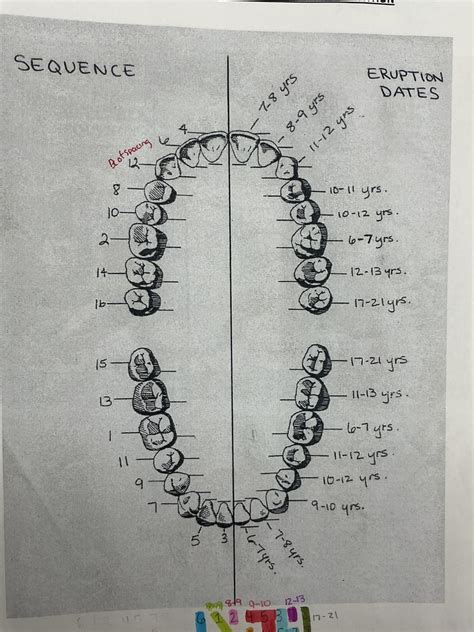 SEQUENCE
ERUPTION
DATES
4
7-8 yrs
6
8-9 yrs
12
11-12 yrs.
8
10-11 yrs.
10
10-12 yrs.
2
6-7 yrs.
14
12-13 yrs.
16
17-21 yrs.
15
17-21 yrs
13
11-13 yrs.
1
6-7 yrs.
11
11-12 yrs.
9
10-12 yrs.
7
9-10 yrs.
5
3
6-7 yrs.
7-8 yrs.
8-9 9-10 12-13
6 1 2 4 5 3 17-21